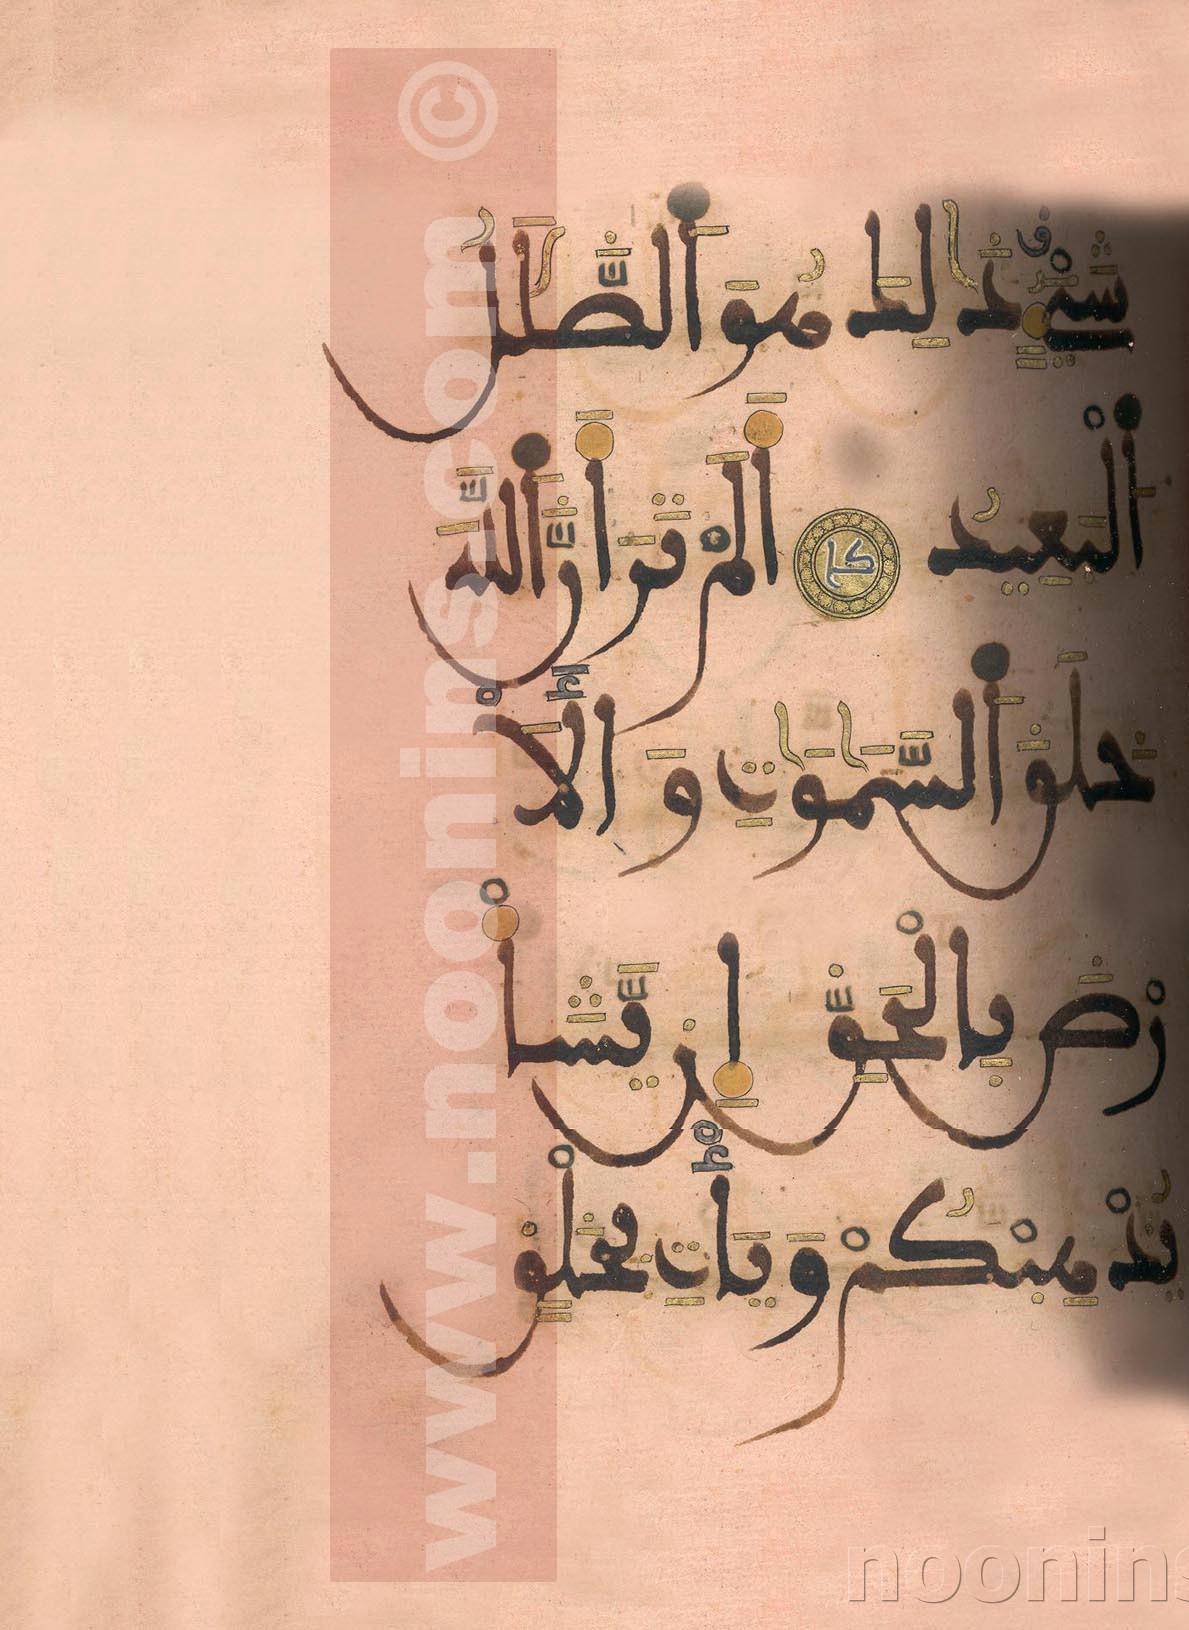 شَىْءٍ ذَٰلِكَ هُوَ ٱلضَّلَٰلُ
ٱلْبَعِيدُ أَلَمْ تَرَ أَنَّ ٱللَّهَ
خَلَقَ ٱلسَّمَٰوَٰتِ وَٱلْأَ
رْضَ بِالْحَقِّ إِن يَّشَأْ
يُذْهِبْكُمْ وَيَأْتِ بِخَلْقٍ
www.noonins.com ©
noonins